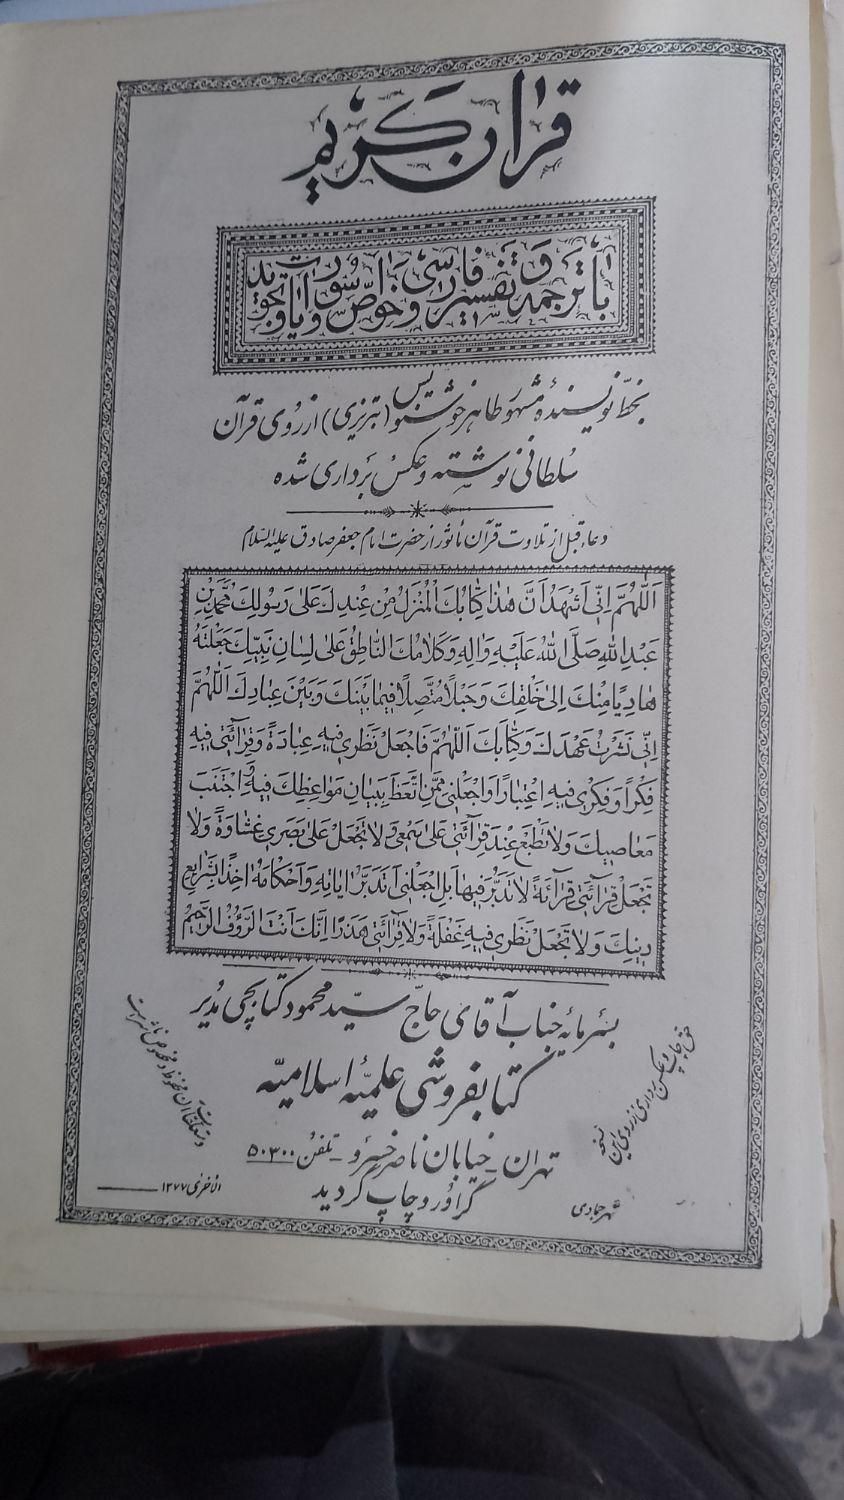 قرآن کریم
با ترجمه و تفسیر فارسی و خواص سور و آیات و تجوید
بخط نویسندهٔ مشهور طاهر خوشنویس (تبریزی) از روی قرآن
سلطانی نوشته و عکس برداری شده
دعاء قبل از تلاوت قرآن مأثور از حضرت امام جعفر صادق علیه السلام
اَللّهُمَّ اِنّی اَشْهَدُ اَنَّ هٰذا کِتابُکَ الْمُنْزَلُ مِنْ عِنْدِکَ عَلیٰ رَسُولِکَ مُحَمَّدِ بْنِ
عَبْدِ اللهِ صَلَّی اللهُ عَلَیْهِ وَ الِهِ وَ کَلامُکَ النّاطِقُ عَلیٰ لِسانِ نَبِیِّکَ جَعَلْتَهُ
هادِیًا مِنْکَ اِلیٰ خَلْقِکَ وَ حَبْلًا مُتَّصِلًا فیما بَیْنَکَ وَ بَیْنَ عِبادِکَ اَللّهُمَّ
اِنّی نَشَرْتُ عَهْدَکَ وَ کِتابَکَ اَللّهُمَّ فَاجْعَلْ نَظَری فیهِ عِبادَةً وَ قِرائَتی فیهِ
فِکْرًا وَ فِکْری فیهِ اِعْتِبارًا وَ اجْعَلْنی مِمَّنِ اتَّعَظَ بِبَیانِ مَواعِظِکَ فیهِ وَ اجْتَنَبَ
مَعاصیکَ وَلا تَطْبَعْ عِنْدَ قِرائَتی عَلیٰ سَمْعی وَلا تَجْعَلْ عَلیٰ بَصَری غِشاوَةً وَلا
تَجْعَلْ قِرائَتی قِرائَةً لا تَدَبُّرَ فیها بَلِ اجْعَلْنی اَتَدَبَّرُ ایاتِهِ وَ اَحْکامَهُ اخِذًا بِشَرایِعِ
دینِکَ وَلا تَجْعَلْ نَظَری فیهِ غَفْلَةً وَلا قِرائَتی هَذَرًا اِنَّکَ اَنْتَ الرَّؤُفُ الرَّحیمُ
بسرمایه جناب آقای حاج سید محمود کتابچی مدیر
کتابفروشی علمیهٔ اسلامیه
تهران - خیابان ناصر خسرو - تلفن ۵۰۳۰۰
گراور و چاپ گردید
حق چاپ و عکس برداری از روی این نسخه
و متعلقات آن محفوظ و مخصوص ناشر است
شهر جمادی
الاخری ۱۳۷۷